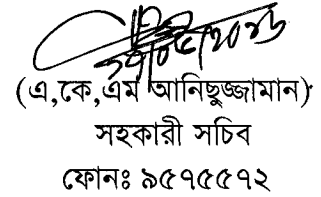 (এ,কে,এম আনিছুজ্জামান)
সহকারী সচিব
ফোনঃ ৯৫৭৫৫৭২